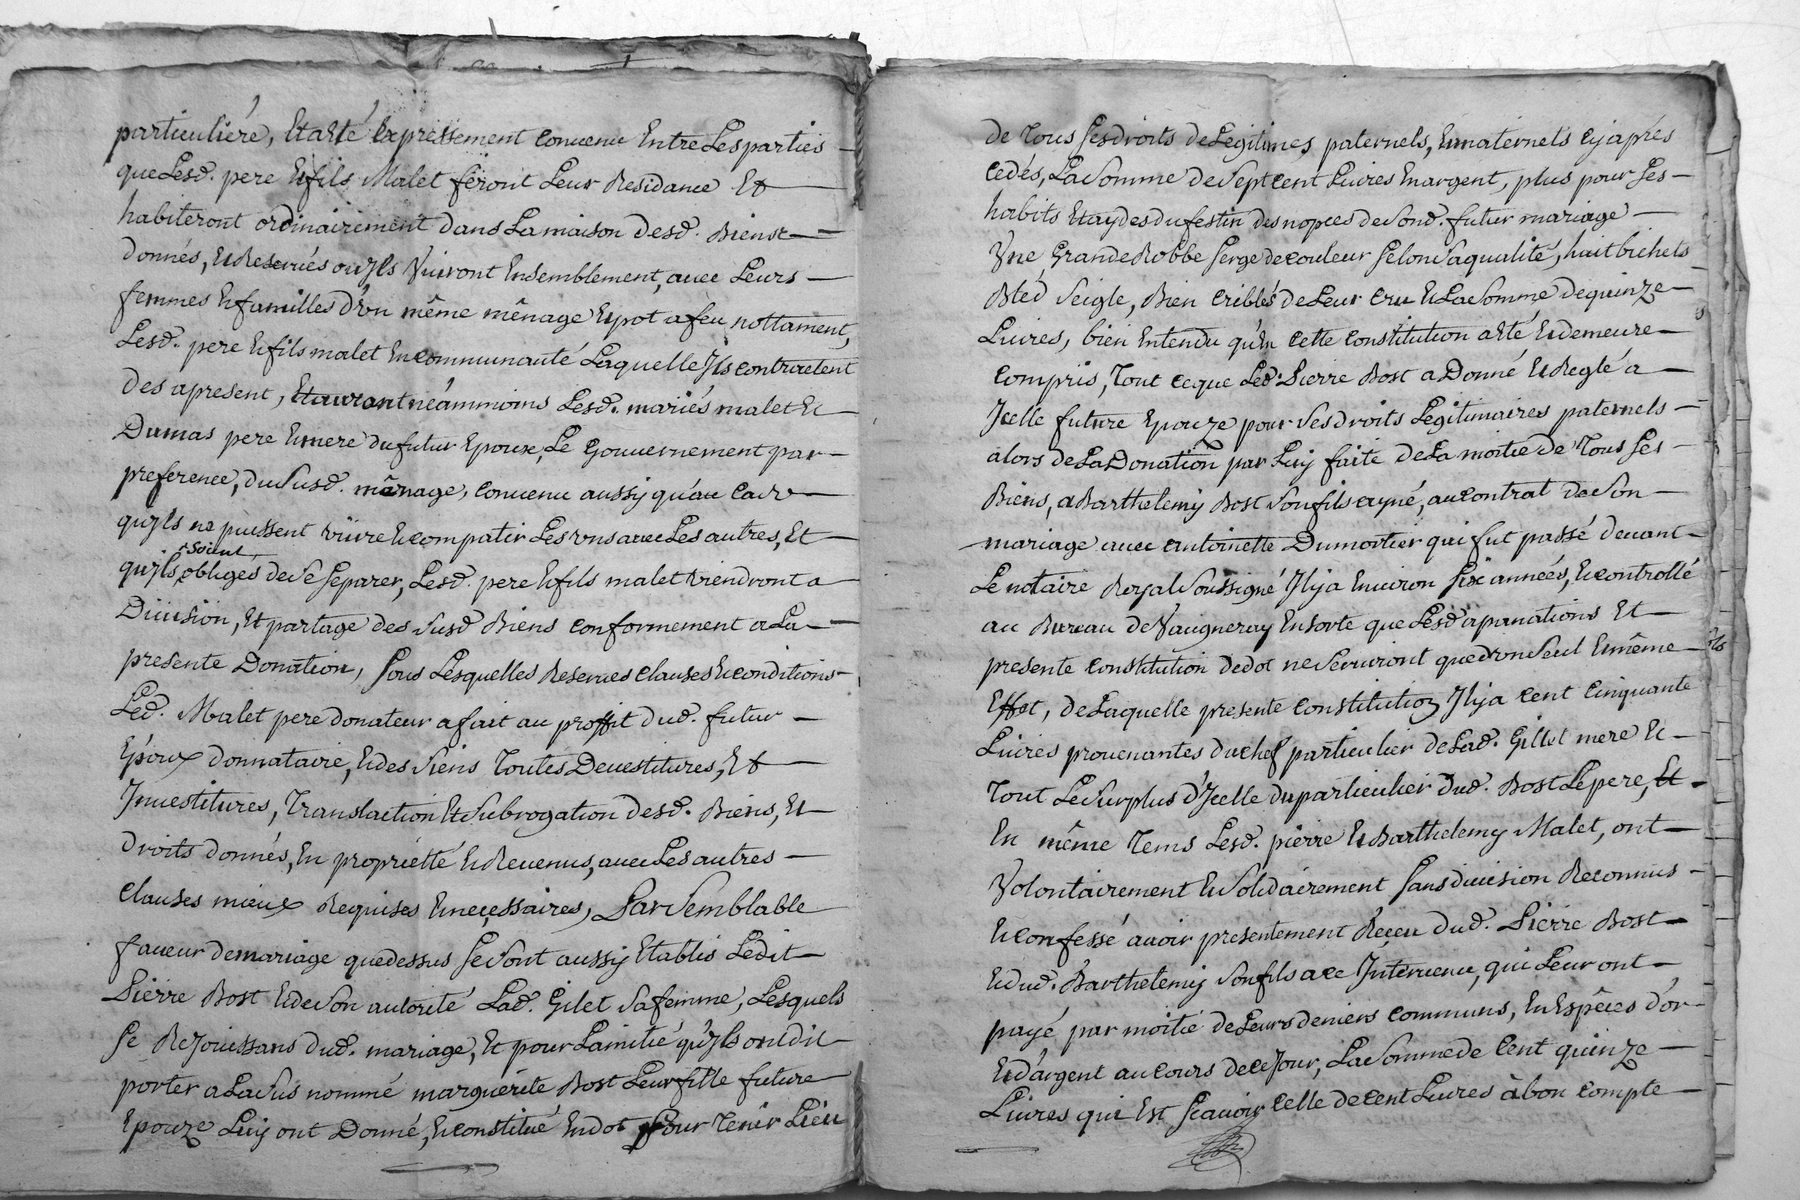 particuliére, Et a Eté Expressement convenu Entre Les parties
que Lesd. pere Et fils Malet feront Leur Residance Et
habiteront ordinairement dans La maison desd. Biens
donnés, Et Reservés ou Ils Vivront Ensemblement, avec Leurs
femmes Et familles d'un même mênage Et pot a feu nottament,
Lesd. pere Et fils malet En communauté Laquelle Ils contractent
des a present, Et auront néammoins Lesd. mariés malet Et
Dumas pere Et mere du futur Epoux, Le gouvernement par
preference, du Susd. mênage, convenu aussy qu'au cas
qu'Ils ne pussent vivre Et compatir Les uns avec Les autres, Et
qu'Ils soient obligés de Se Separer, Lesd. pere Et fils malet viendront a
Division, Et partage des Susd Biens conformement a La
presente Donation, Sous Lesquelles Reserves clauses Et conditions
Led. Malet pere donateur a fait au proffit dud. futur
Epoux donnataire, Et des Siens Toutes Devestitures, Et
Investitures, Translaction Et Subrogation desd. Biens, Et
droits donnés, En proprietté Et Revenus, avec Les autres
clauses mieux Requises Et neçessaires, Par Semblable
faveur de mariage que dessus Se Sont aussy Etablis Ledit
Pierre Bost Et de Son autorité Lad. Gilet Sa femme, Lesquels
Se Rejouissans dud. mariage, Et pour Lamitié qu'Ils ont dit
porter a La Sus nommé marguerite Bost Leur fille future
Epouze Luy ont Donné, Et constitué En dot pour Tenir Lieu
de Tous Ses droits de Legitimes paternels, Et maternels cy après
cedés, La Somme de Sept cent Livres En argent, plus pour Ses
habits Et aydes du festin des nopces de Sond. futur mariage
Une grande Robbe Serge de couleur Selon Sa qualité, huit bichets
Bled Seigle, Bien criblés de Leur cru Et La Somme de quinze
Livres, bien Entendu qu'En cette constitution a Eté Et demeure
compris, Tout ce que Led. Pierre Bost a Donné Et Reglé a
Icelle future Epouze pour Ses droits Legitimaires paternels
alors de La Donation par Luy faite de La moitié de Tous Ses
Biens, a Barthelemy Bost Son fils ayné, au contrat de Son
mariage avec antoinette Dumortier qui fut passé devant
Le notaire Royal Soussigné Il y a Environ Six années, Et controllé
au Bureau de Vaugneray En Sorte que Lesd apanations Et
presente constitution de dot ne Serviront que d'un Seul Et même
Effet, de Laquelle presente constitution Il y a cent cinquante
Livres provenantes du chef particulier de Lad. Gillet mere Et
Tout Le Surplus d'Icelle du particulier dud. Bost Le pere, Et
En même Tems Lesd. pierre Et Barthelemy Malet, ont
Volontairement Et Solidairement Sans division Reconnus
Et confessé avoir presentement Reçeu dud. Pierre Bost
Et dud. Barthelemy Son fils a ce Intervenu, qui Leur ont
payé par moitié de Leurs deniers communs, En Espêces d'or
Et d'argent au cours de ce Jour, La Somme de Cent quinze
Livres qui Est Scavoir celle de cent Livres à bon compte